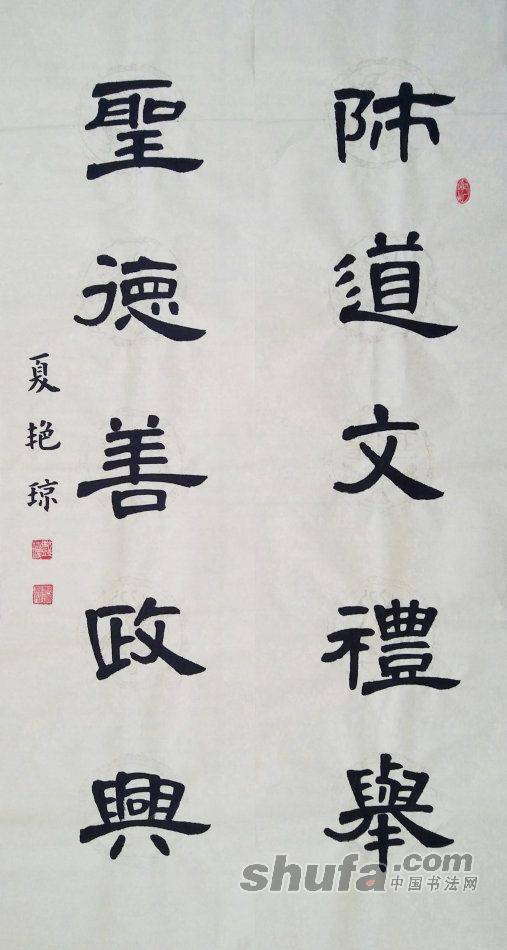 師道文禮舉
聖德善政興
夏艳琼
shufa.com
中国书法网